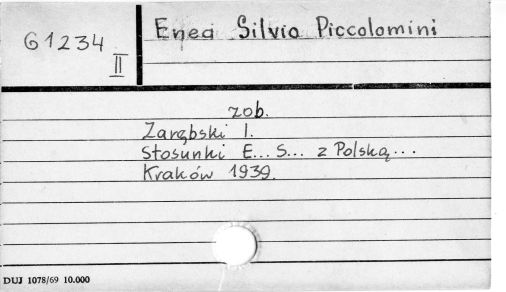 Enea Silvio Piccolomini
61234
II
zob.
Zarębski I.
Stosunki E... S... z Polską...
Kraków 1939.
DUJ 1078/69 10.000